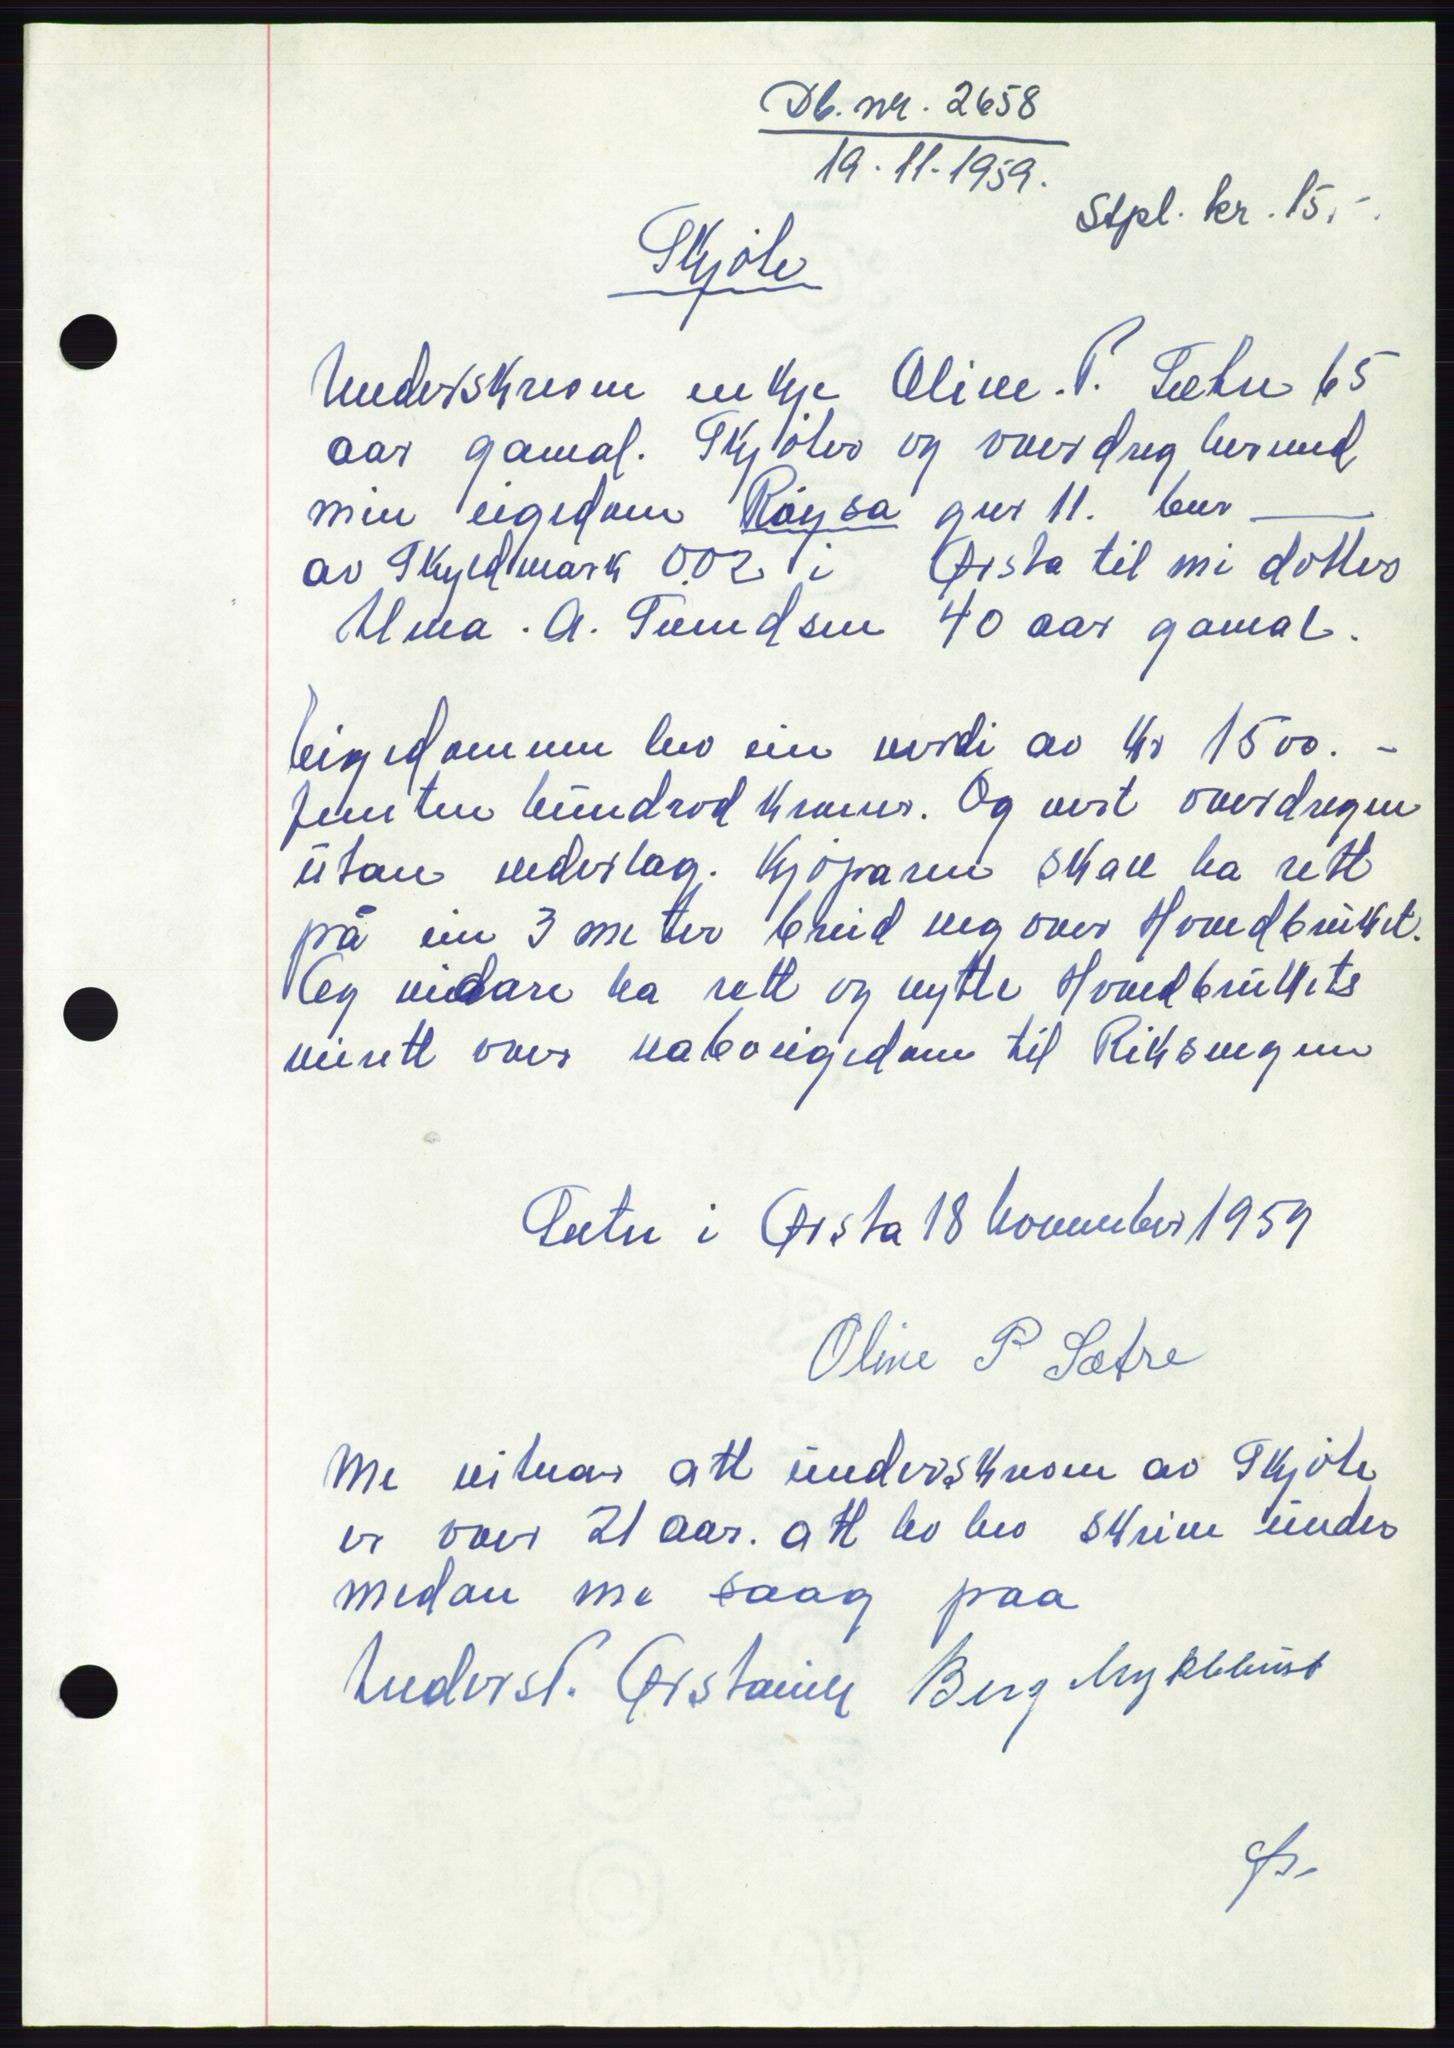 Db. nr. 2658
19.11.1959.
Stpl. kr. 15.-.
Skjøte
Underskreven enkje Oline. P. Sætre 65
aar gamal. Skjøter og overdreg herved
min eigedom Røysa gnr 11. bnr ___
av Skyldmark 0.02 i Ørsta til mi dotter
A. 40 aar gamal.
Eigedommen hev ein verdi av Kr 1500.-
femten hundrod kroner. Og vert overdregen
ütan vederlag. Kjøparen skal ha rett
på ein 3 meter breid veg over Hovedbrüket.
Og vidare ha rett og nytte Hovedbrükets
veirett over naboeigedom til Riksvegen
Sætre i Ørsta 18 November 1959
Oline P Sætre
Me vitnar att ünderskreven av Skjøte
er over 21 aar. att ho hev skrive ünder
medan me saag paa
Anders P. Ørstavik Berg Myklebust